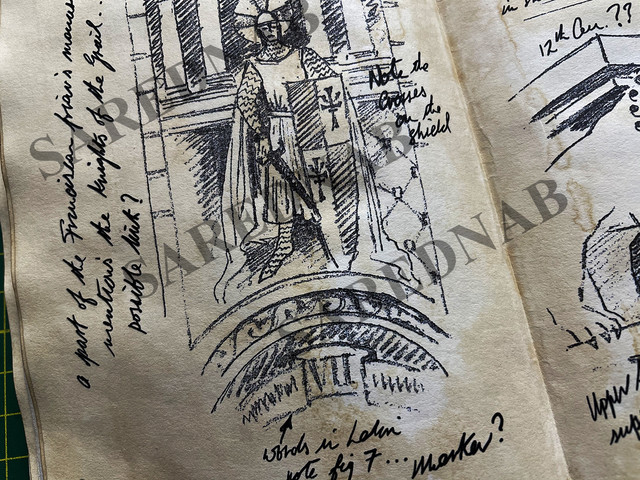 a part of the Franciscan friar's manus
mentions the knights of the Grail...
possible link?
Note the
crosses
on the
shield
VII
words in Latin
note fig 7... marker?
12th Cen. ??
Upper
sup
SAREDNAB
SAREDNAB
SAREDNAB
SAREDNAB